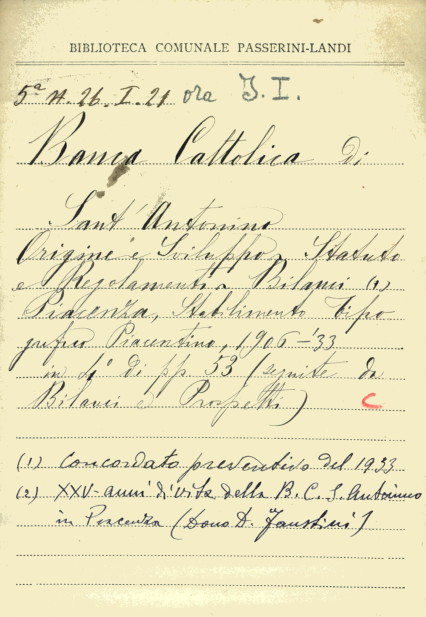 BIBLIOTECA COMUNALE PASSERINI-LANDI
5ª A. 26. I. 21 ora J. I.
Banca Cattolica di
Sant'Antonino
Origine e Sviluppo - Statuto
e Regolamento - Bilanci (1)
Piacenza, Stabilimento Tipo
grafico Piacentino, 1906-'33
in 4° di pp. 53 (seguite da
Bilanci e Prospetti)
C
(1) Concordato preventivo del 1933
(2) XXV-anni di vita della B. C. S. Antonino
in Piacenza (Dono D. Faustini)